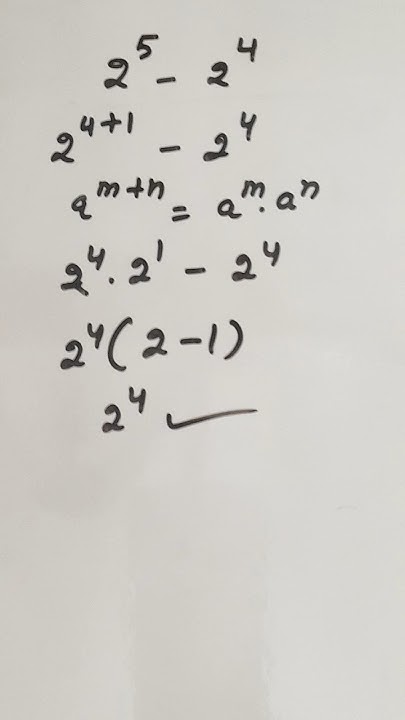 2⁵ - 2⁴
2⁴⁺¹ - 2⁴
aᵐ⁺ⁿ = aᵐ·aⁿ
2⁴·2¹ - 2⁴
2⁴(2-1)
2⁴ ✓